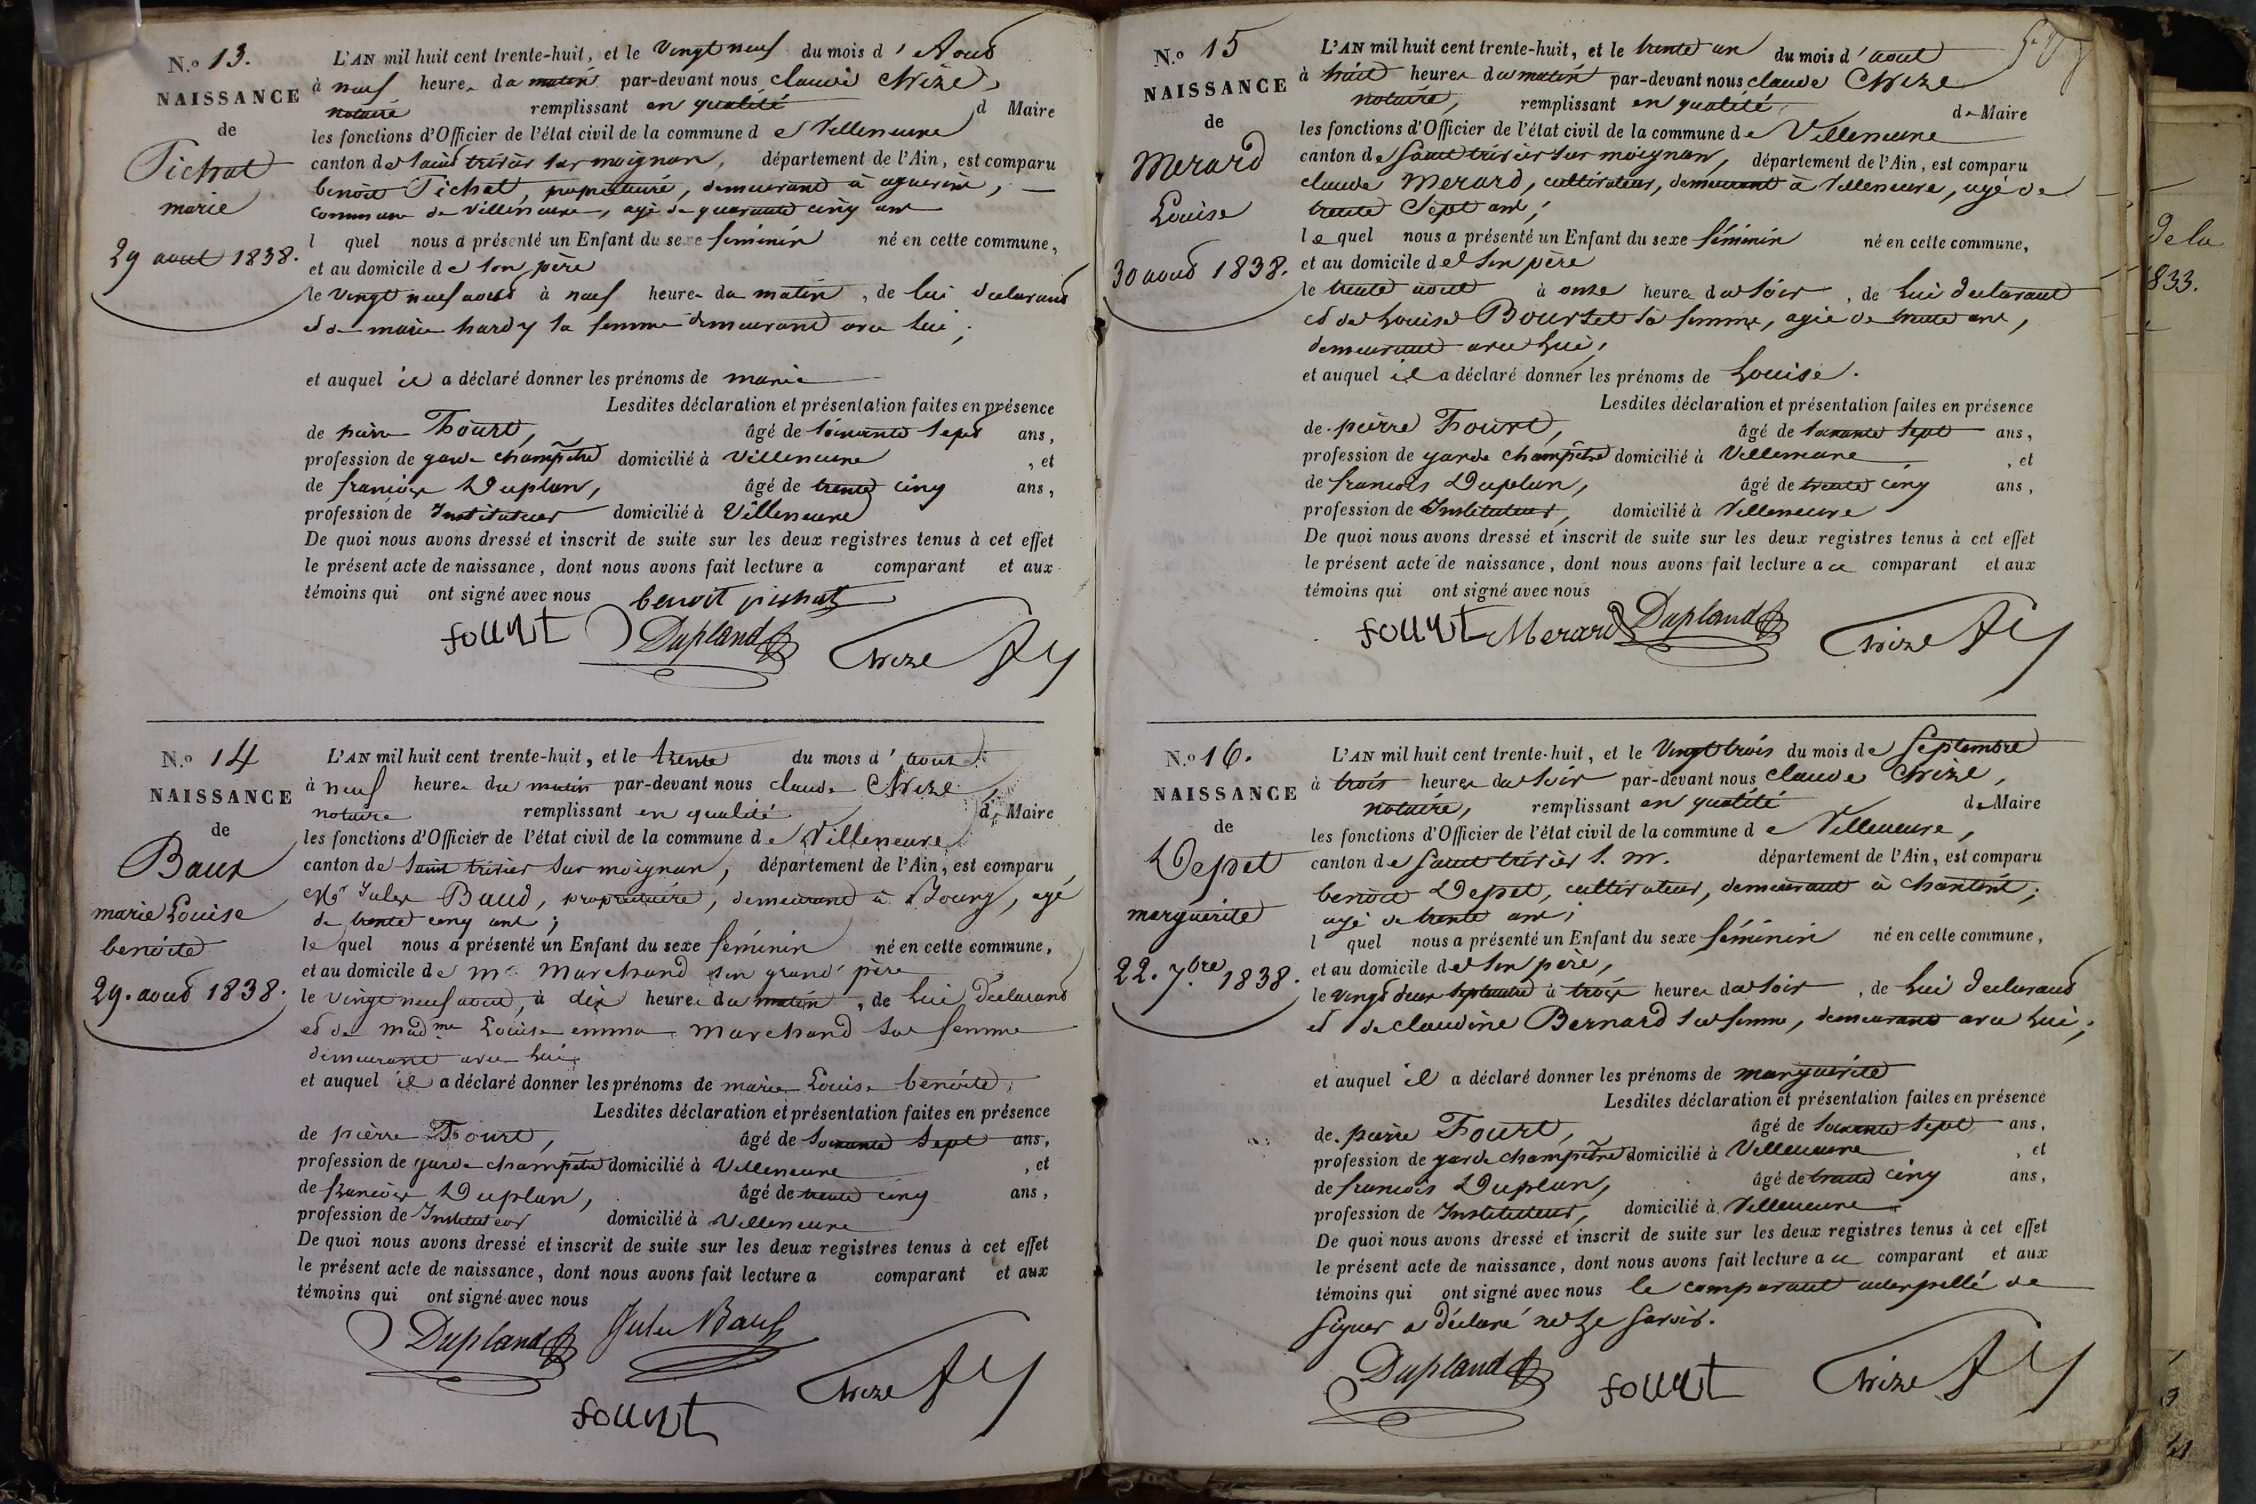 N.º 13.
NAISSANCE
de
Pichat
marie
29 aout 1838.
L'AN mil huit cent trente-huit, et le vingt neuf du mois d' Aout
à neuf heures du matin par-devant nous claude Chize,
notaire remplissant en qualité d Maire
les fonctions d'Officier de l'état civil de la commune de Villeneuve
canton de saint trivier sur moignan, département de l'Ain, est comparu
benoit Pichat, propriétaire, demeurant à aguerin,
commune de villeneuve, agé de quarante cinq ans
l quel nous a présenté un Enfant du sexe féminin né en cette commune,
et au domicile de son père
le vingt neuf aout à neuf heures du matin, de lui déclarant
et de marie hardy sa femme demeurant avec lui;
et auquel il a déclaré donner les prénoms de marie
Lesdites déclaration et présentation faites en présence
de pierre Fourt, âgé de soixante sept ans,
profession de garde champêtre domicilié à Villeneuve, et
de françois Duplan, âgé de trente cinq ans,
profession de Instituteur domicilié à Villeneuve
De quoi nous avons dressé et inscrit de suite sur les deux registres tenus à cet effet
le présent acte de naissance, dont nous avons fait lecture a comparant et aux
témoins qui ont signé avec nous benoit pichat
fourt Dupland Chize
N.º 14
NAISSANCE
de
Baux
marie Louise
benoite
29. aout 1838.
L'AN mil huit cent trente-huit, et le trente du mois d' aout
à neuf heures du matin par-devant nous claude Chize,
notaire remplissant en qualité de Maire
les fonctions d'Officier de l'état civil de la commune de Villeneuve
canton de saint trivier sur moignan, département de l'Ain, est comparu
Mr Jules Baud, propriétaire, demeurant à Bourg, agé
de trente cinq ans;
le quel nous a présenté un Enfant du sexe féminin né en cette commune,
et au domicile de mr. Marchand son grand père
le vingt neuf aout, à dix heures du matin, de lui déclarant
et de madme Louise emma Marchand sa femme
demeurant avec lui
et auquel il a déclaré donner les prénoms de marie Louise benoite;
Lesdites déclaration et présentation faites en présence
de pierre Fourt, âgé de soixante sept ans,
profession de garde champêtre domicilié à Villeneuve, et
de françois Duplan, âgé de trente cinq ans,
profession de Instituteur domicilié à Villeneuve
De quoi nous avons dressé et inscrit de suite sur les deux registres tenus à cet effet
le présent acte de naissance, dont nous avons fait lecture a comparant et aux
témoins qui ont signé avec nous
Dupland Jules Baud
fourt Chize
N.º 15
NAISSANCE
de
Merard
Louise
30 aout 1838.
L'AN mil huit cent trente-huit, et le trente un du mois d' aout
à huit heures du matin par-devant nous claude Chize
notaire, remplissant en qualité de Maire
les fonctions d'Officier de l'état civil de la commune de Villeneuve
canton de Saint trivier sur moignan, département de l'Ain, est comparu
claude Merard, cultivateur, demeurant à Villeneuve, agé de
trente Sept ans;
le quel nous a présenté un Enfant du sexe féminin né en cette commune,
et au domicile de son père
le trente aout à onze heures du soir, de lui déclarant
et de Louise Bourset sa femme, agée de trente ans,
demeurant avec lui;
et auquel il a déclaré donner les prénoms de Louise.
Lesdites déclaration et présentation faites en présence
de pierre Fourt, âgé de soixante sept ans,
profession de garde champêtre domicilié à Villeneuve, et
de francois Duplan, âgé de trente cinq ans,
profession de Instituteur, domicilié à Villeneuve
De quoi nous avons dressé et inscrit de suite sur les deux registres tenus à cet effet
le présent acte de naissance, dont nous avons fait lecture a ce comparant et aux
témoins qui ont signé avec nous
fourt Merard Dupland Chize
N.º 16.
NAISSANCE
de
Depet
marguerite
22. 7.bre 1838.
L'AN mil huit cent trente-huit, et le vingt trois du mois de Septembre
à trois heures du soir par-devant nous claude Chize,
notaire, remplissant en qualité de Maire
les fonctions d'Officier de l'état civil de la commune de Villeneuve,
canton de Saint trivier s. m. département de l'Ain, est comparu
benoit Depet, cultivateur, demeurant à chanteins;
agé de trente ans;
l quel nous a présenté un Enfant du sexe féminin né en cette commune,
et au domicile de son père,
le vingt deux septembre à trois heures du soir, de lui déclarant
et de claudine Bernard sa femme, demeurant avec lui;
et auquel il a déclaré donner les prénoms de marguerite
Lesdites déclaration et présentation faites en présence
de pierre Fourt, âgé de soixante sept ans,
profession de garde champêtre domicilié à Villeneuve, et
de francois Duplan, âgé de trente cinq ans,
profession de Instituteur, domicilié à Villeneuve
De quoi nous avons dressé et inscrit de suite sur les deux registres tenus à cet effet
le présent acte de naissance, dont nous avons fait lecture a ce comparant et aux
témoins qui ont signé avec nous le comparant interpellé de
signer a déclaré ne le savoir.
Dupland fourt Chize
de la
1833.